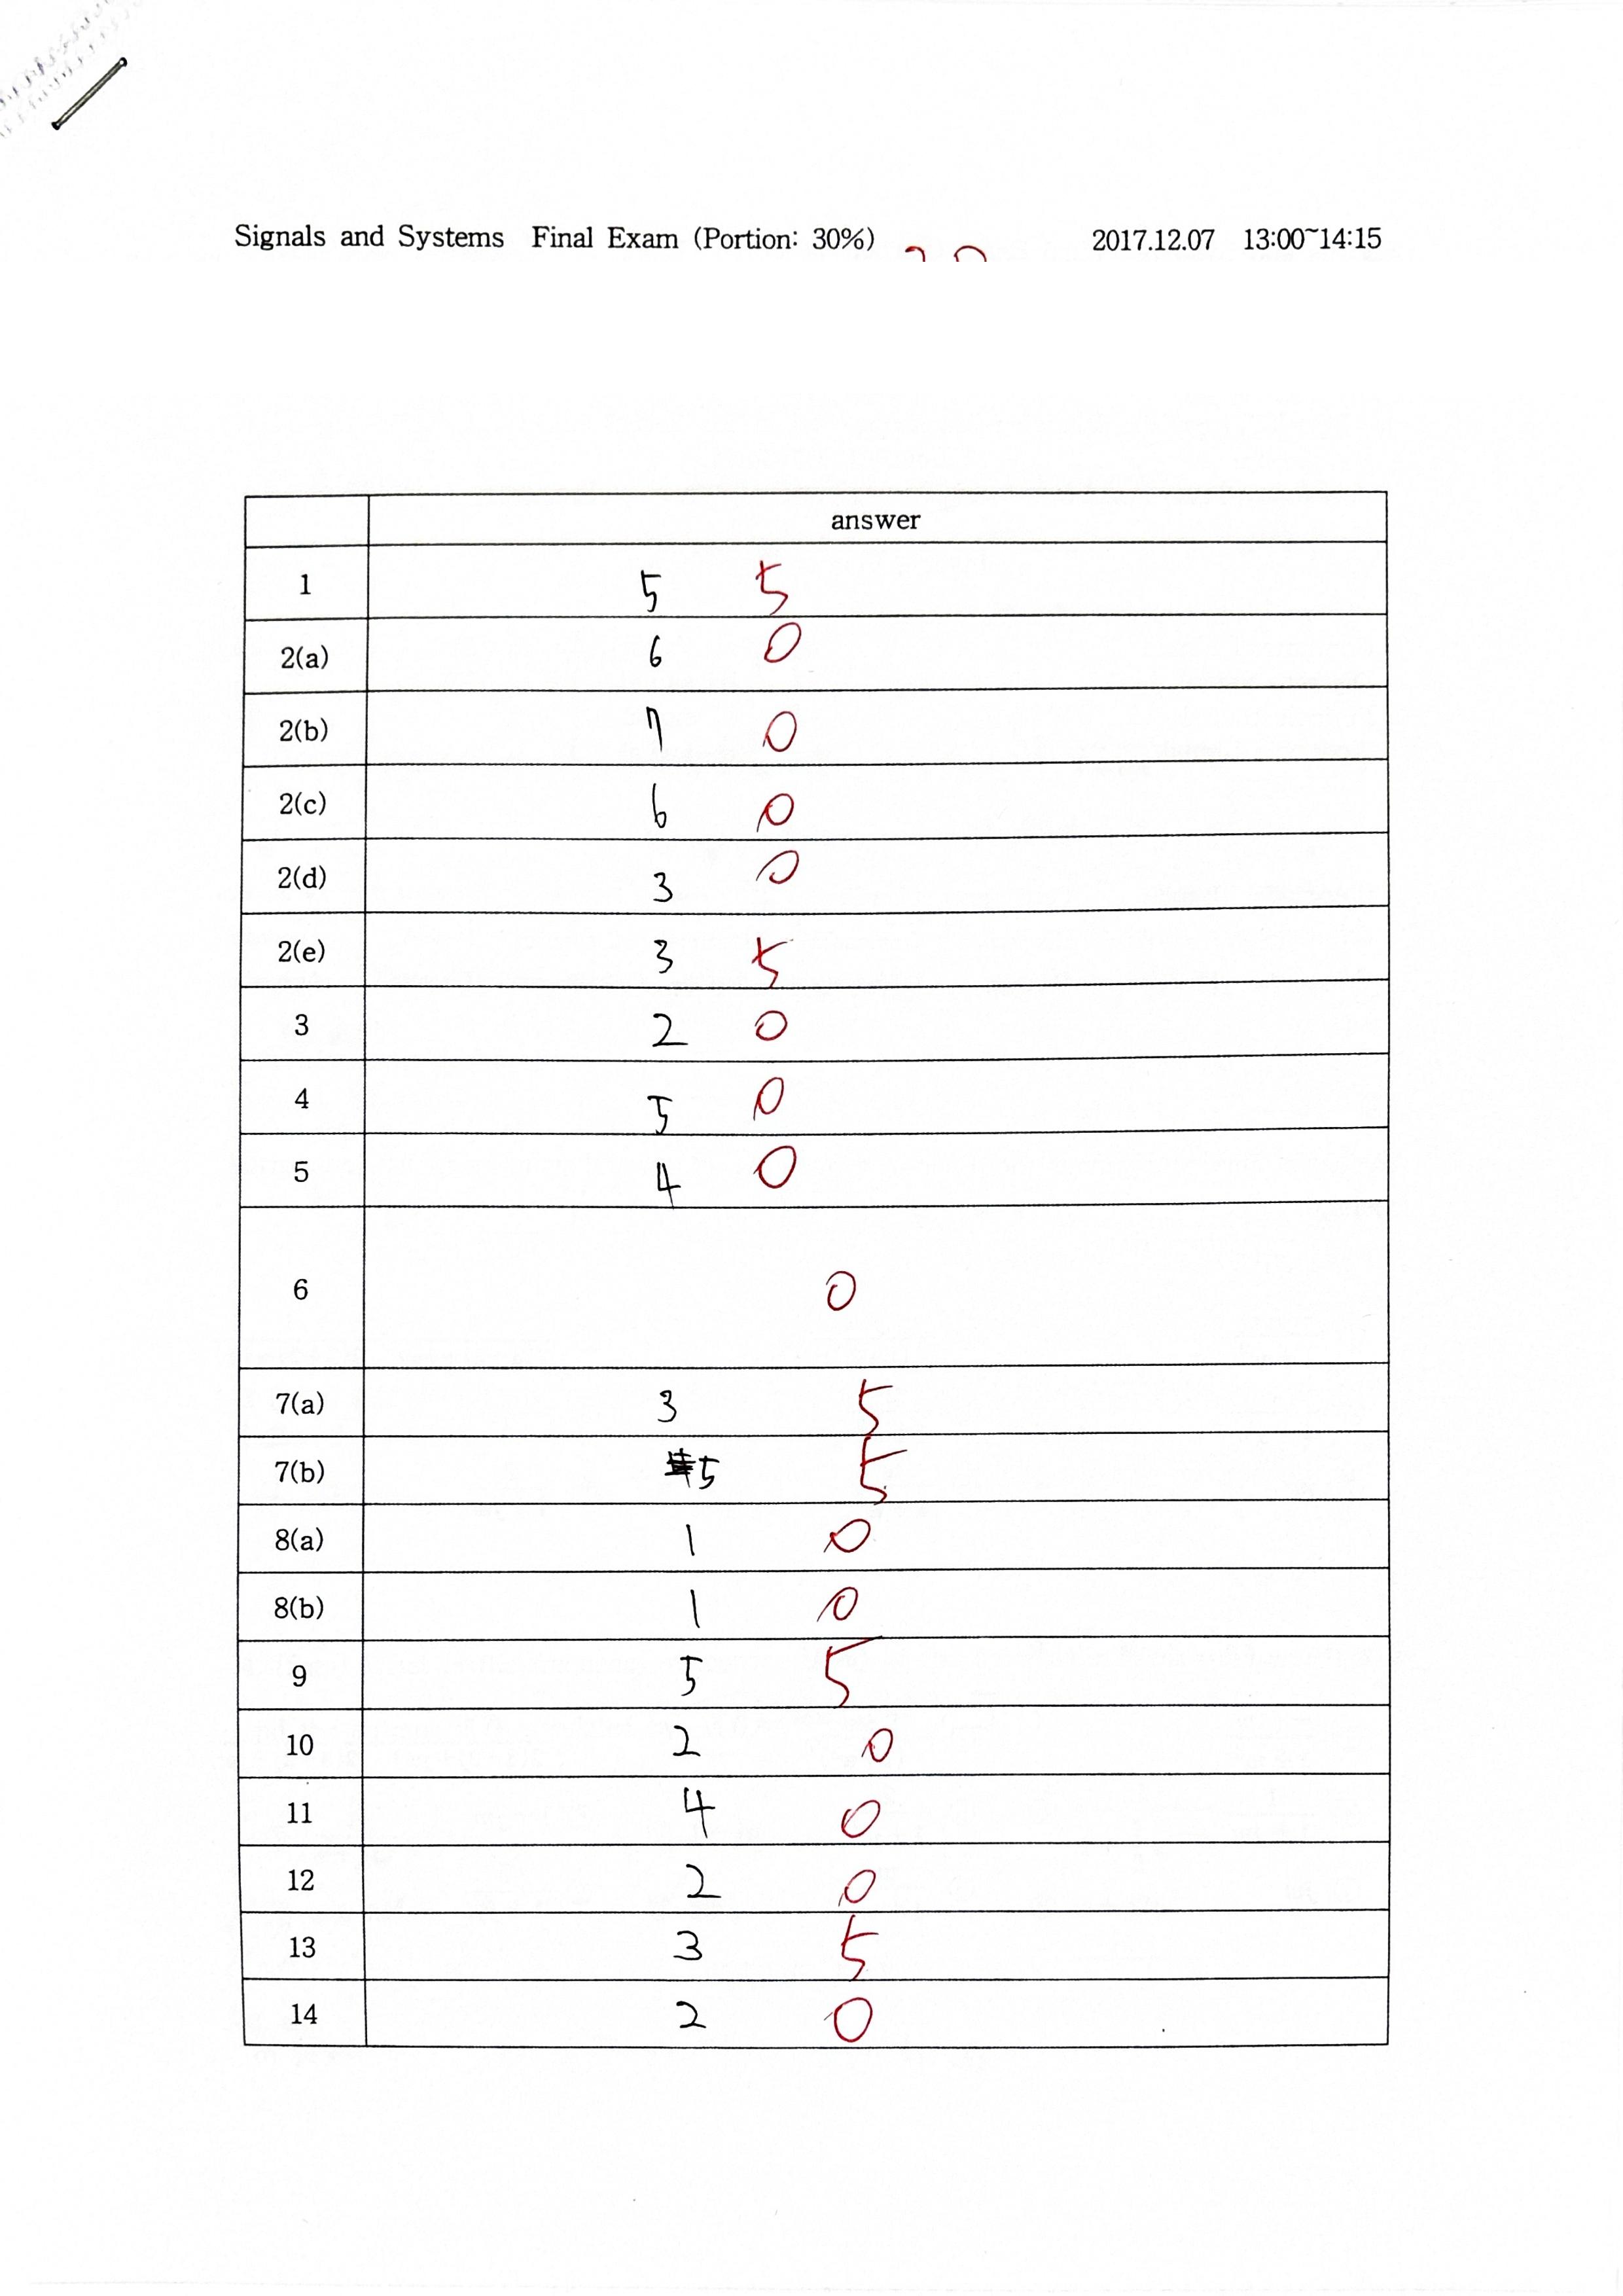 Signals and Systems Final Exam (Portion: 30%) 2017.12.07 13:00~14:15
answer
1 5 5
2(a) 6 0
2(b) 7 0
2(c) 6 0
2(d) 3 0
2(e) 3 5
3 2 0
4 5 0
5 4 0
6 0
7(a) 3 5
7(b) 5 5
8(a) 1 0
8(b) 1 0
9 5 5
10 2 0
11 4 0
12 2 0
13 3 5
14 2 0